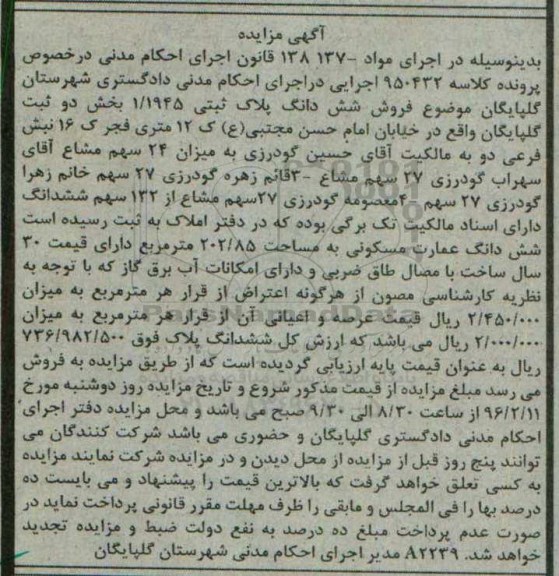 آگهی مزایده
بدینوسیله در اجرای مواد -۱۳۷ ۱۳۸ قانون اجرای احکام مدنی درخصوص
پرونده کلاسه ۹۵۰۴۳۲ اجرایی دراجرای احکام مدنی دادگستری شهرستان
گلپایگان موضوع فروش شش دانگ پلاک ثبتی ۱/۱۹۴۵ بخش دو ثبت
گلپایگان واقع در خیابان امام حسن مجتبی(ع) ک ۱۲ متری فجر ک ۱۶ نبش
فرعی دو به مالکیت آقای حسین گودرزی به میزان ۲۴ سهم مشاع آقای
سهراب گودرزی ۲۷ سهم مشاع -۳قائم زهره گودرزی ۲۷ سهم خانم زهرا
گودرزی ۲۷ سهم -۴معصومه گودرزی ۲۷سهم مشاع از ۱۳۲ سهم ششدانگ
دارای اسناد مالکیت تک برگی بوده که در دفتر املاک به ثبت رسیده است
شش دانگ عمارت مسکونی به مساحت ۲۰۲/۸۵ مترمربع دارای قیمت ۳۰
سال ساخت با مصال طاق ضربی و دارای امکانات آب برق گاز که با توجه به
نظریه کارشناسی مصون از هرگونه اعتراض از قرار هر مترمربع به میزان
۲/۴۵۰/۰۰۰ ریال قیمت عرصه و اعیانی آن از قرار هر مترمربع به میزان
۲/۰۰۰/۰۰۰ ریال می باشد که ارزش کل ششدانگ پلاک فوق ۷۳۶/۹۸۲/۵۰۰
ریال به عنوان قیمت پایه ارزیابی گردیده است که از طریق مزایده به فروش
می رسد مبلغ مزایده از قیمت مذکور شروع و تاریخ مزایده روز دوشنبه مورخ
۹۶/۲/۱۱ از ساعت ۸/۳۰ الی ۹/۳۰ صبح می باشد و محل مزایده دفتر اجرای
احکام مدنی دادگستری گلپایگان و حضوری می باشد شرکت کنندگان می
توانند پنج روز قبل از مزایده از محل دیدن و در مزایده شرکت نمایند مزایده
به کسی تعلق خواهد گرفت که بالاترین قیمت را پیشنهاد و می بایست ده
درصد بها را فی المجلس و مابقی را ظرف مهلت مقرر قانونی پرداخت نماید در
صورت عدم پرداخت مبلغ ده درصد به نفع دولت ضبط و مزایده تجدید
خواهد شد. A۲۲۳۹ مدیر اجرای احکام مدنی شهرستان گلپایگان